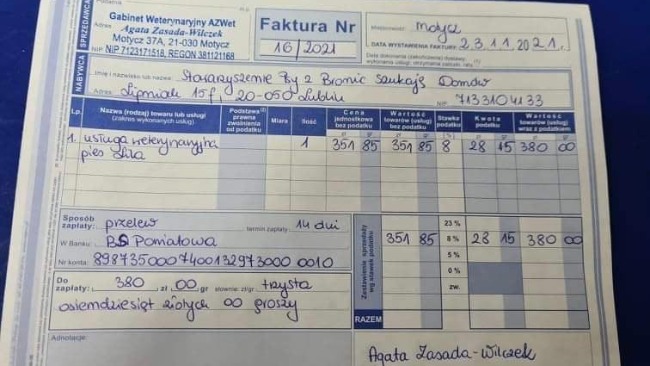 Podatnik
SPRZEDAWCA
Adres
Gabinet Weterynaryjny AZWet
Agata Zasada-Wilczek
Motycz 37A, 21-030 Motycz
NIP 7123171518, REGON 381121168
Faktura Nr
16/2021
Miejscowość: Motycz
DATA WYSTAWIENIA FAKTURY: 23.11.2021.
NABYWCA
Imię i nazwisko lub nazwa: Stowarzyszenie Psy z Bronic szukają Domów
Adres: Lipniak 15f, 20-050 Lublin
NIP 7133104133
Lp. Nazwa (rodzaj) towaru lub usługi (zakres wykonanych usług) Podstawa prawna zwolnienia od podatku Miara Ilość Cena jednostkowa bez podatku Wartość towarów (usług) bez podatku Stawka podatku Kwota podatku Wartość towarów (usług) wraz z podatkiem
1. usługa weterynaryjna 1 351 85 351 85 8 28 15 380 00
pies
Sposób zapłaty: przelew termin zapłaty: 14 dni
W Banku: BS Poniatowa
Nr konta: 89873500074001329730000010
Do zapłaty: 380 zł 00 gr słownie: zł/gr trzysta
osiemdziesiąt złotych 00 groszy
Zestawienie sprzedaży wg stawek podatku
23 %
351 85 8 % 28 15 380 00
5 %
0 %
zw.
RAZEM
Adnotacje:
Agata Zasada-Wilczek